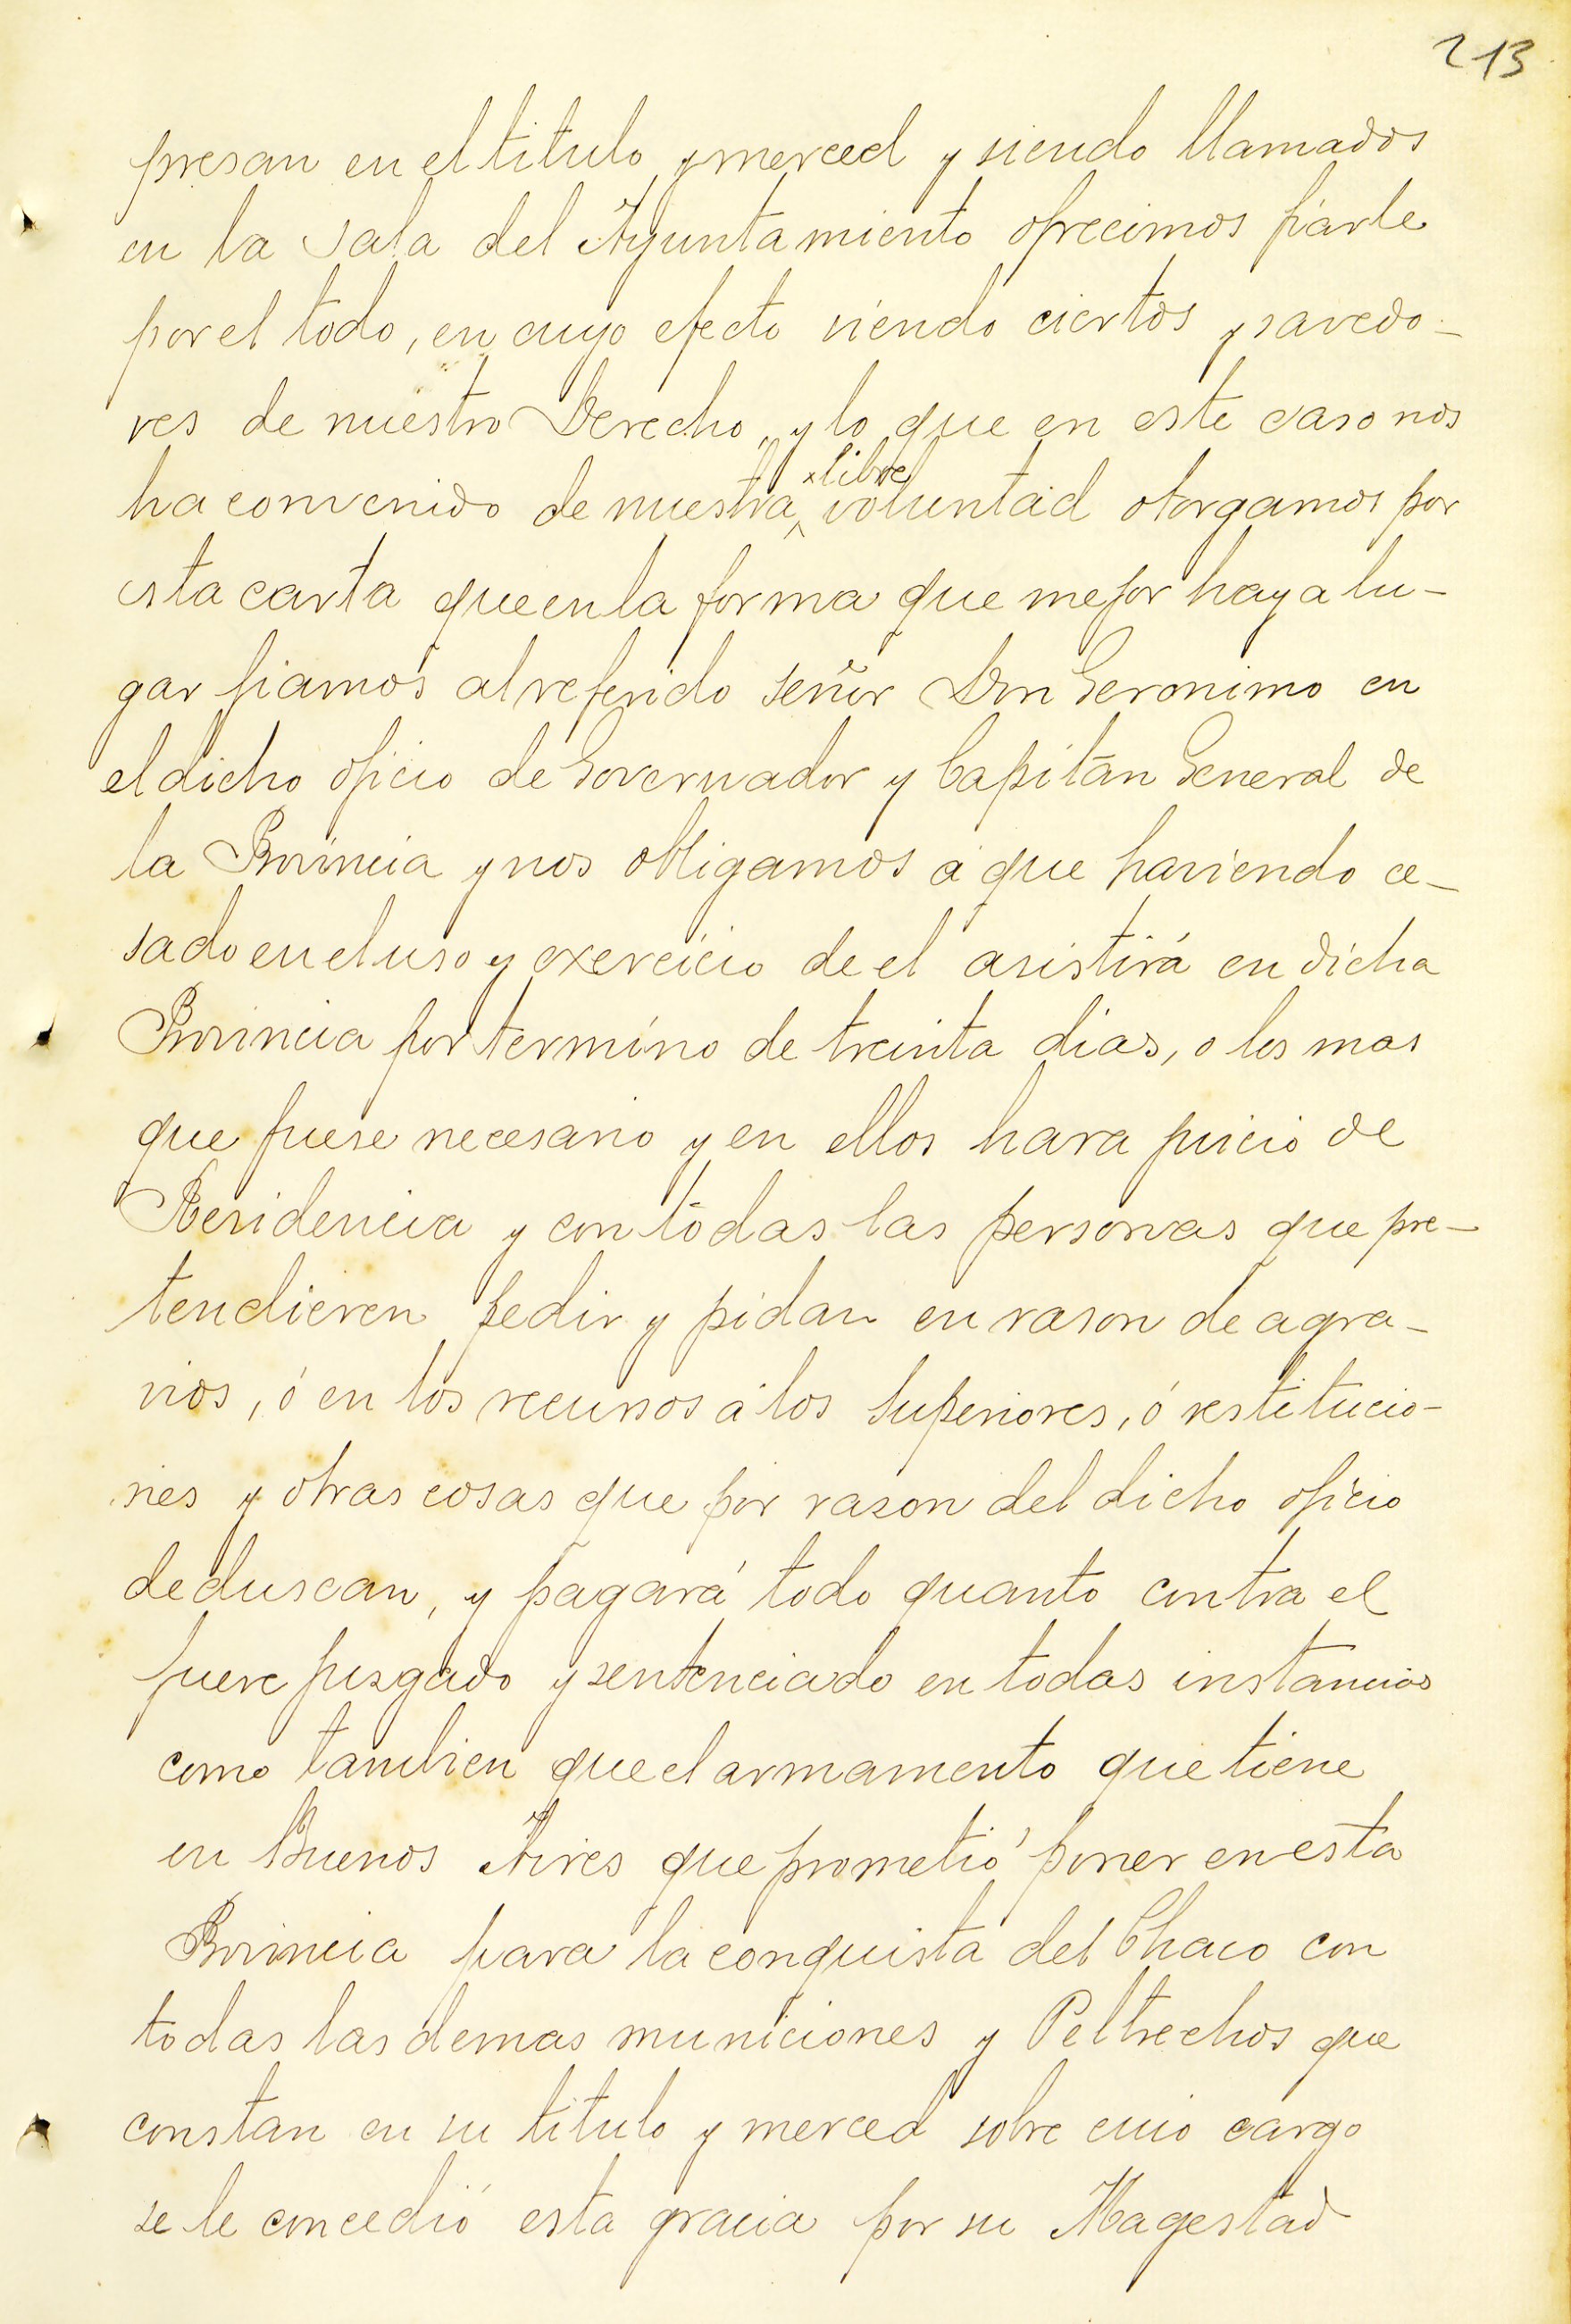 213
presan en el titulo y merced y siendo llamados
en la sala del Ayuntamiento ofrecimos fiarle
por el todo, en cuyo efecto siendo ciertos y savedo-
res de nuestro Derecho, y lo que en este caso nos
ha convenido de nuestra libre voluntad otorgamos por
esta carta que en la forma que mejor haya lu-
gar fiamos al referido señor Don Geronimo en
el dicho oficio de Governador y Capitan General de
la Provincia y nos obligamos á que haviendo ce-
sado en el uso y exercicio de el asistirá en dicha
Provincia por termino de treinta dias, o los mas
que fuese necesario y en ellos hara juicio de
Residencia y con todas las personas que pre-
tendieren pedir y pidan en rason de agra-
vios, ó en los recursos á los Superiores, ó restitucio-
nes y otras cosas que por rason del dicho oficio
deduscan, y pagará todo quanto contra el
fuere jusgado y sentenciado en todas instancias
como tambien que el armamento que tiene
en Buenos Aires que prometió poner en esta
Provincia para la conquista del Chaco con
todas las demas municiones y Peltrechos que
constan en su titulo y merced sobre cuio cargo
se le concedió esta gracia por su Magestad